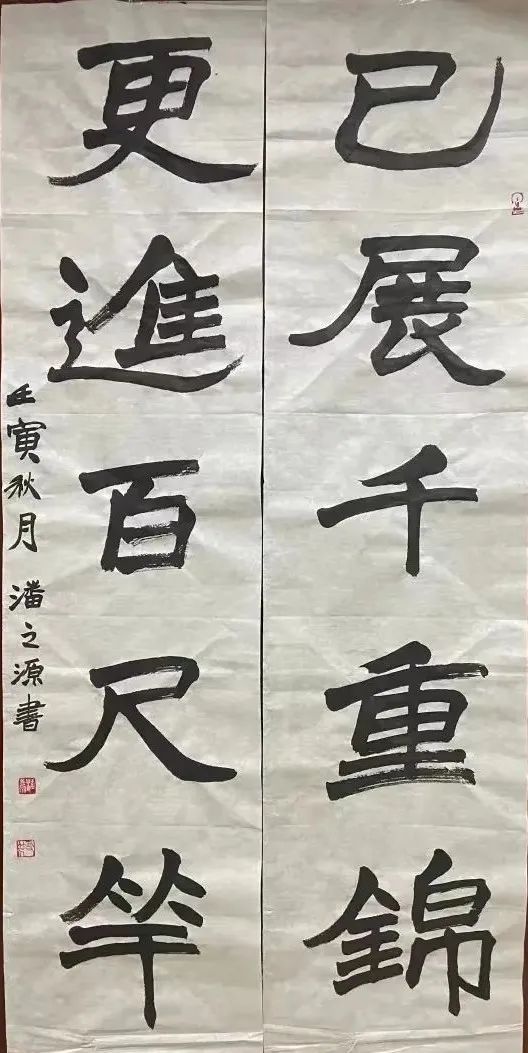 已展千重錦
更進百尺竿
壬寅秋月 潘之源書